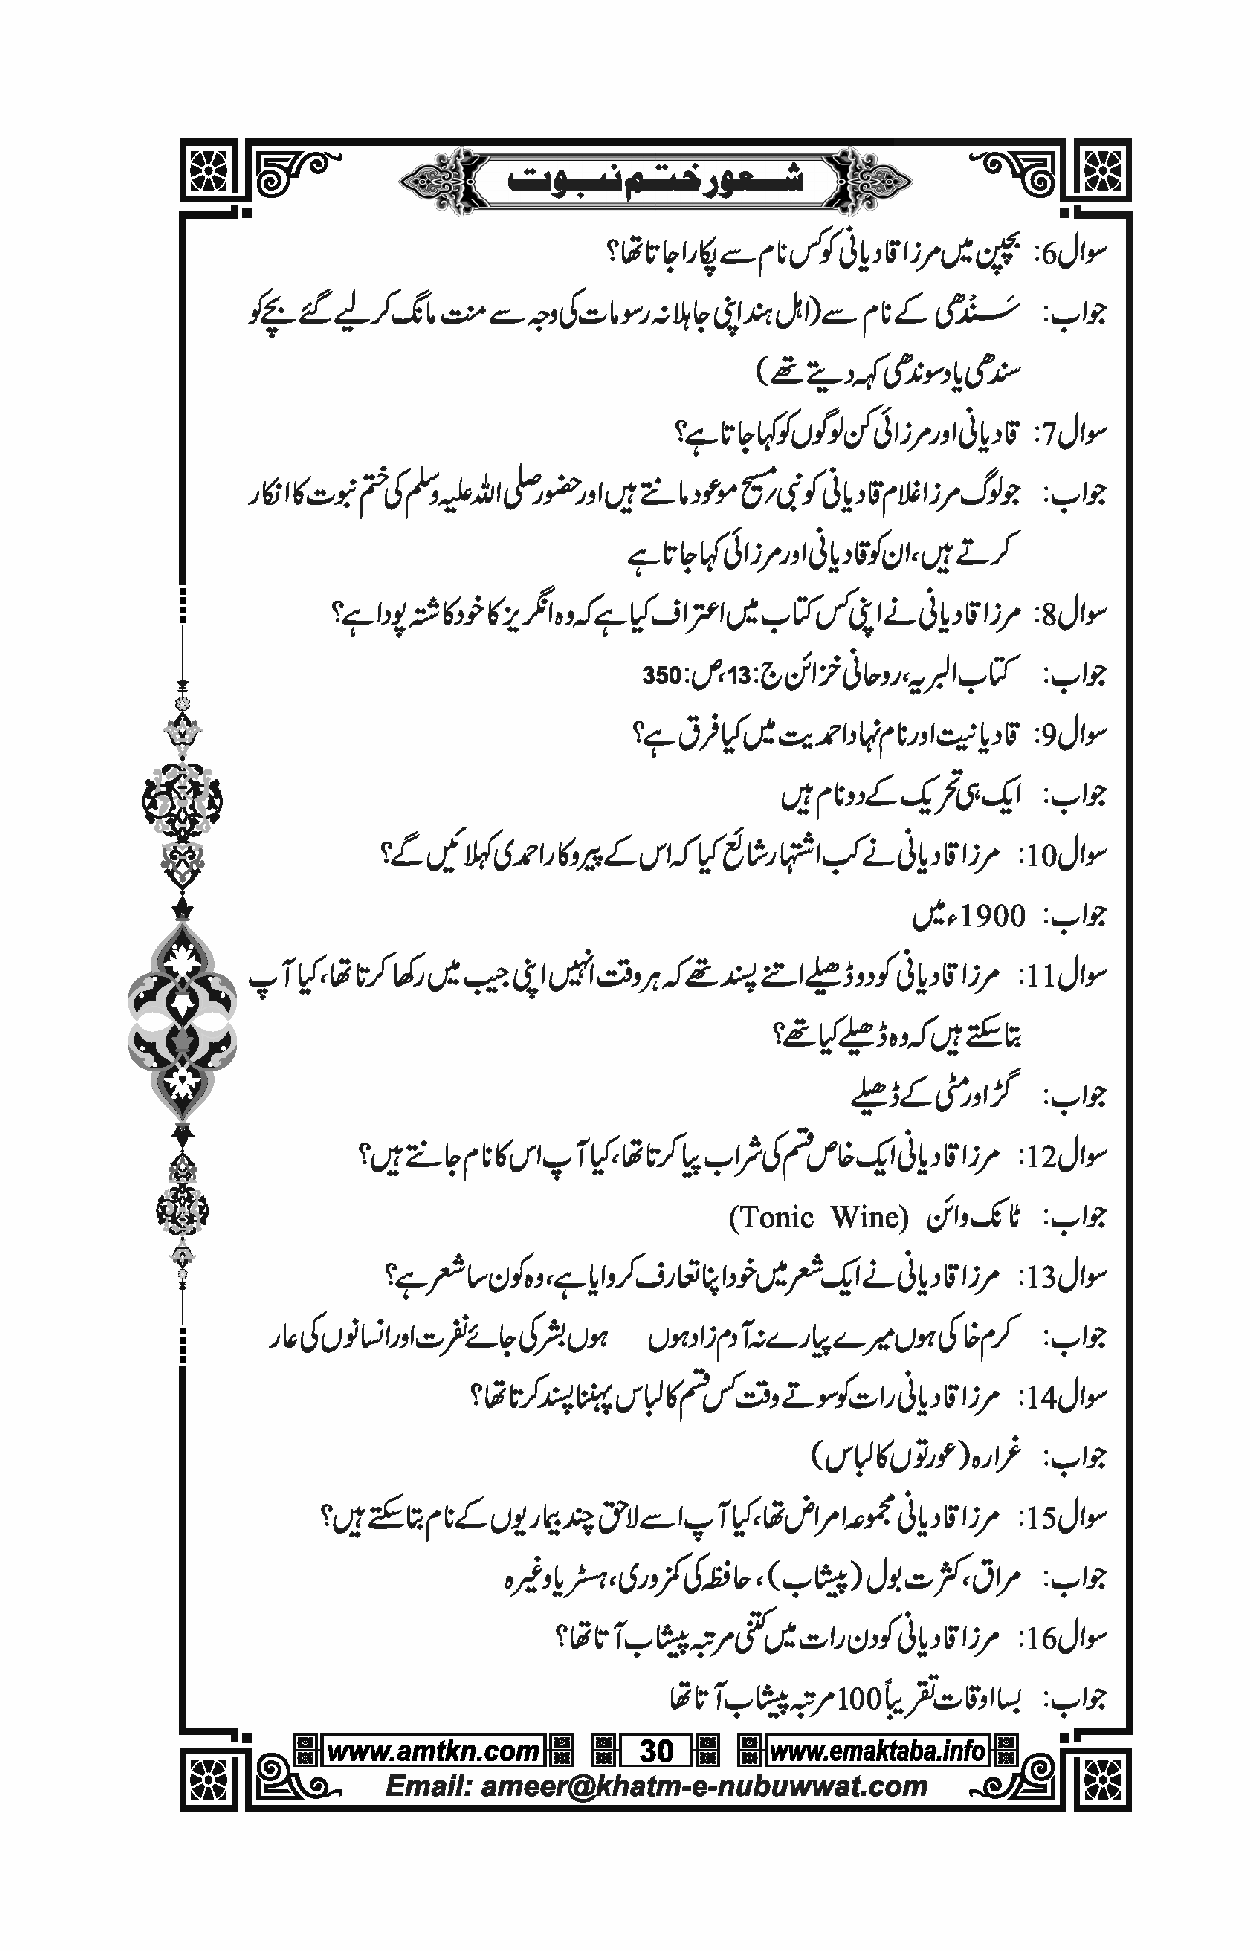 شعور ختم نبوت
سوال6: بچپن میں مرزا قادیانی کو کس نام سے پکارا جاتا تھا؟
جواب: سَندُھی کے نام سے (اہل ہند اپنی جاہلانہ رسومات کی وجہ سے منت مانگ کر لیے گئے بچے کو
سندھی یا دسوندھی کہہ دیتے تھے)
سوال7: قادیانی اور مرزائی کن لوگوں کو کہا جاتا ہے؟
جواب: جو لوگ مرزا غلام قادیانی کو نبی/مسیح موعود مانتے ہیں اور حضور صلی اللہ علیہ وسلم کی ختم نبوت کا انکار
کرتے ہیں، ان کو قادیانی اور مرزائی کہا جاتا ہے
سوال8: مرزا قادیانی نے اپنی کس کتاب میں اعتراف کیا ہے کہ وہ انگریز کا خود کاشتہ پودا ہے؟
جواب: کتاب البریہ، روحانی خزائن ج:13، ص:350
سوال9: قادیانیت اور نام نہاد احمدیت میں کیا فرق ہے؟
جواب: ایک ہی تحریک کے دو نام ہیں
سوال10: مرزا قادیانی نے کب اشتہار شائع کیا کہ اس کے پیروکار احمدی کہلائیں گے؟
جواب: 1900ء میں
سوال11: مرزا قادیانی کو دو ڈھیلے اتنے پسند تھے کہ ہر وقت انہیں اپنی جیب میں رکھا کرتا تھا، کیا آپ
بتا سکتے ہیں کہ وہ ڈھیلے کیا تھے؟
جواب: گڑ اور مٹی کے ڈھیلے
سوال12: مرزا قادیانی ایک خاص قسم کی شراب پیا کرتا تھا، کیا آپ اس کا نام جانتے ہیں؟
جواب: ٹانک وائن (Tonic Wine)
سوال13: مرزا قادیانی نے ایک شعر میں خود اپنا تعارف کروایا ہے، وہ کون سا شعر ہے؟
جواب: کرم خاکی ہوں میرے پیارے نہ آدم زاد ہوں ہوں بشر کی جائے نفرت اور انسانوں کی عار
سوال14: مرزا قادیانی رات کو سوتے وقت کس قسم کا لباس پہننا پسند کرتا تھا؟
جواب: غرارہ (عورتوں کا لباس)
سوال15: مرزا قادیانی مجموعہ امراض تھا، کیا آپ اسے لاحق چند بیماریوں کے نام بتا سکتے ہیں؟
جواب: مراق، کثرت بول (پیشاب)، حافظہ کی کمزوری، ہسٹریا وغیرہ
سوال16: مرزا قادیانی کو دن رات میں کتنی مرتبہ پیشاب آتا تھا؟
جواب: بسا اوقات تقریباً 100 مرتبہ پیشاب آتا تھا
www.amtkn.com 30 www.emaktaba.info
Email: ameer@khatm-e-nubuwwat.com